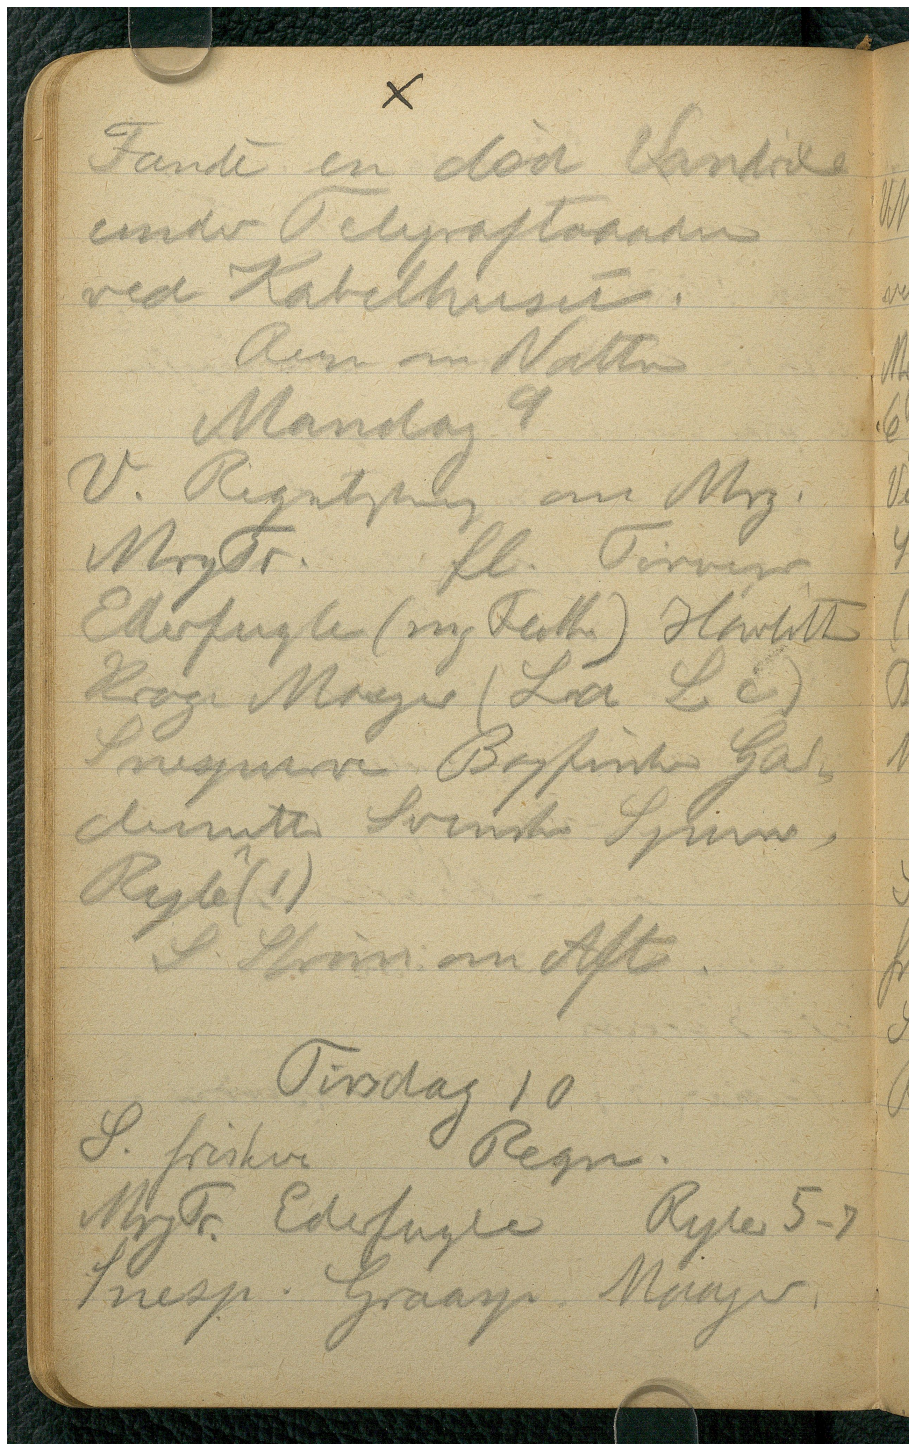 x
Fandt en død Vandrixe
under Telegraftraadene
ved Kabelhuset.
Regn om Natten
Mandag 9
V. Regntykning om Mrg.
MrgTr. fl. Tornirisk
Ederfugle (ny Flok) Havlitt
Krage Maager (La Lc)
Snespurve Bogfinker Graa
Svenske Spurve,
Ryle (1)
S. Storm om Aft.
Tirsdag 10
S. friskere Regn.
MrgTr. Ederfugle Ryler 5-7
Snesp. Graasp. Maager.